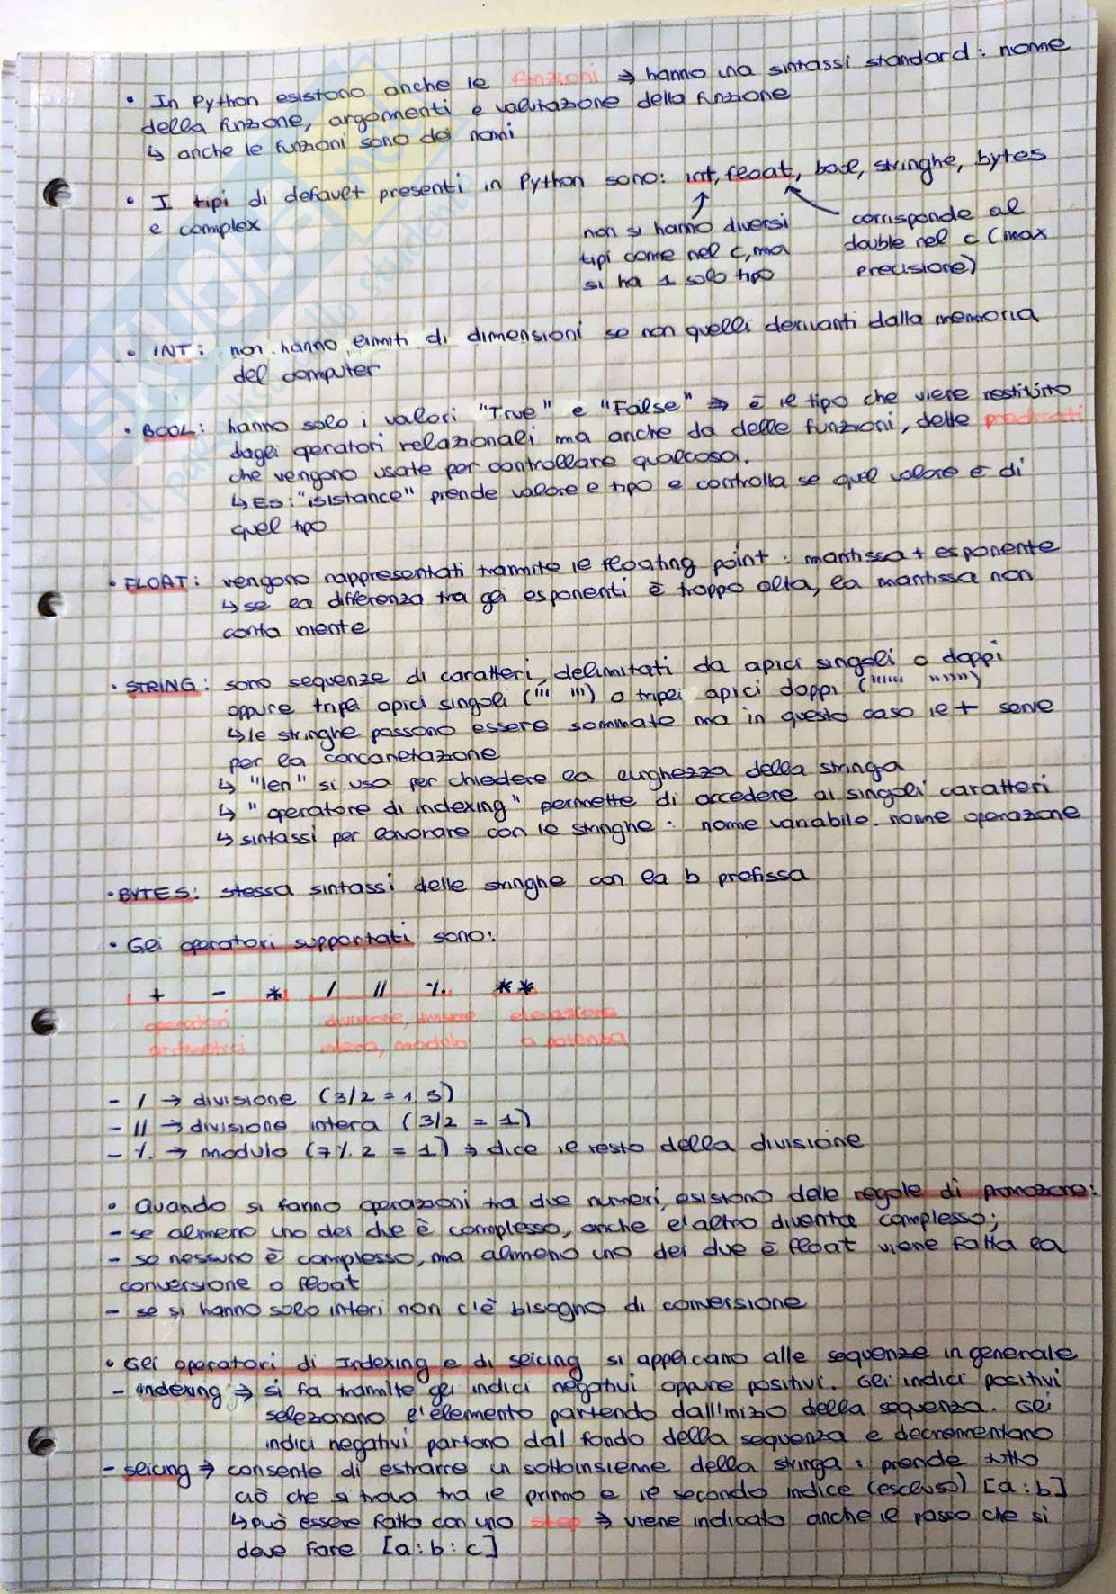 • In Python esistono anche le funzioni → hanno una sintassi standard: nome
della funzione, argomenti e valutazione della funzione
↳ anche le funzioni sono dei nomi
• I tipi di default presenti in Python sono: int, float, bool, stringhe, bytes
e complex
non si hanno diversi
tipi come nel c, ma
si ha 1 solo tipo
corrisponde al
double nel c (max
precisione)
• INT: non hanno limiti di dimensioni se non quelli derivanti dalla memoria
del computer
• BOOL: hanno solo i valori "True" e "False" → è il tipo che viene restituito
dagli operatori relazionali ma anche da delle funzioni, dette predicati
che vengono usate per controllare qualcosa.
↳ Es: "isistance" prende valore e tipo e controlla se quel valore è di
quel tipo
• FLOAT: vengono rappresentati tramite le floating point: mantissa + esponente
↳ se la differenza tra gli esponenti è troppo alta, la mantissa non
conta niente
• STRING: sono sequenze di caratteri, delimitati da apici singoli o doppi
oppure tripli apici singoli (''' ''') o tripli apici doppi (""" """)
↳ le stringhe possono essere sommate ma in questo caso il + serve
per la concanetazione
↳ "len" si usa per chiedere la lunghezza della stringa
↳ "operatore di indexing" permette di accedere ai singoli caratteri
↳ sintassi per lavorare con le stringhe: nome variabile. nome operazione
• BYTES: stessa sintassi delle stringhe con la b prefissa
• Gli operatori supportati sono:
+ - * / // % **
operatori aritmetici
divisione, divisione intera, modulo
elevazione a potenza
- / → divisione (3/2 = 1,5)
- // → divisione intera (3/2 = 1)
- % → modulo (7%2 = 1) → dice il resto della divisione
• Quando si fanno operazioni tra due numeri, esistono delle regole di promozione:
- se almeno uno dei due è complesso, anche l'altro diventa complesso;
- se nessuno è complesso, ma almeno uno dei due è float viene fatta la
conversione a float
- se si hanno solo interi non c'è bisogno di conversione
• Gli operatori di Indexing e di slicing si applicano alle sequenze in generale
- indexing → si fa tramite gli indici negativi oppure positivi. Gli indici positivi
selezionano l'elemento partendo dall'inizio della sequenza. Gli
indici negativi partono dal fondo della sequenza e decrementano
- slicing → consente di estrarre un sottoinsieme della stringa: prende tutto
ciò che si trova tra il primo e il secondo indice (escluso) [a:b]
↳ può essere fatto con uno step → viene indicato anche il passo che si
deve fare [a:b:c]